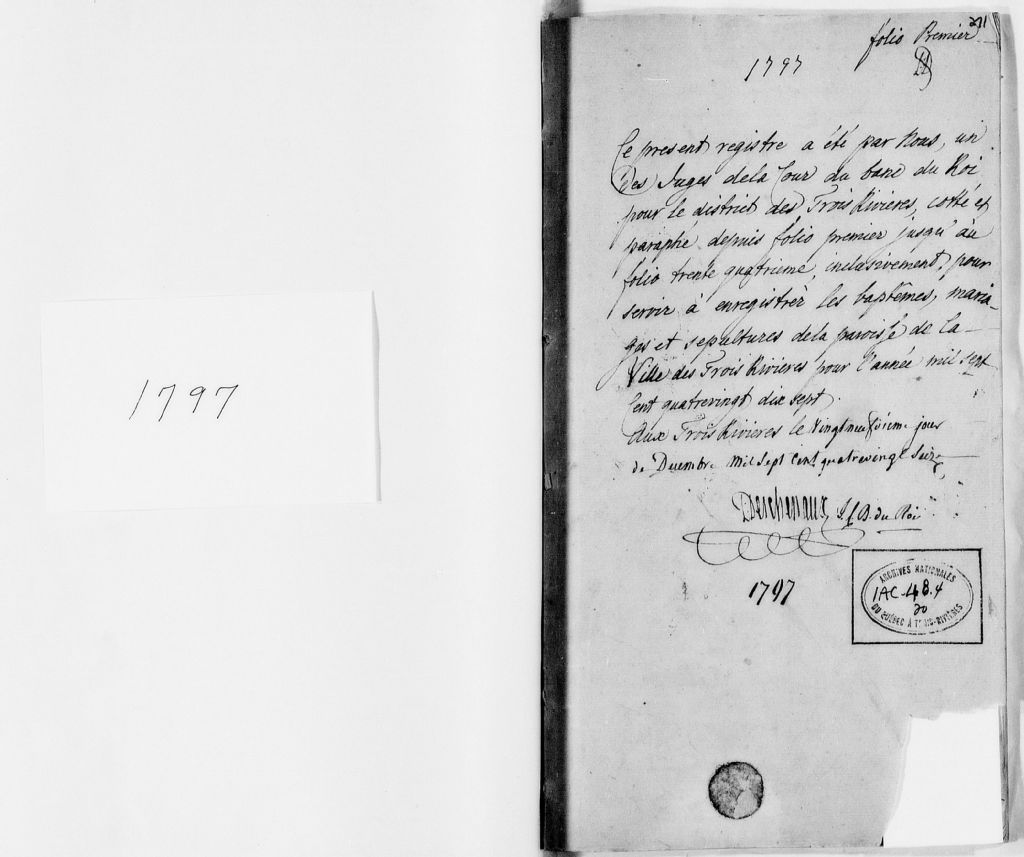 1797
folio Premier
1797
Ce present registre a été par Nous, un
Des Juges dela Cour du banc du Roi
pour le district des Trois Rivieres, cotté et
paraphé depuis folio premier jusqu'au
folio trente quatrieme, inclusivement, pour
servir à enregistrer les baptêmes, maria-
ges et sepultures dela paroisse de la
Ville des Trois Rivieres pour l'année mil sept
Cent quatrevingt dix sept.
Aux Trois Rivieres le Vingtneufviem. jour
de Decembre Mil Sept Cent quatrevingt Seize
Deschenaux J. C. B. du Roi
1797
ARCHIVES NATIONALES
1AC-48.4
20
DU QUÉBEC À TROIS-RIVIÈRES